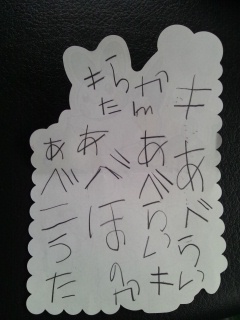 キあべらい
かm
あべらいキ
きらた
あべほのか
あべこうた